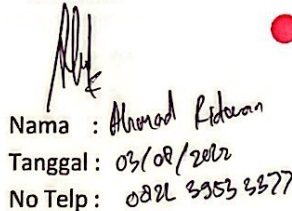 Nama : Ahmad Ridwan
Tanggal : 03/08/2022
No Telp : 0821 3953 3377